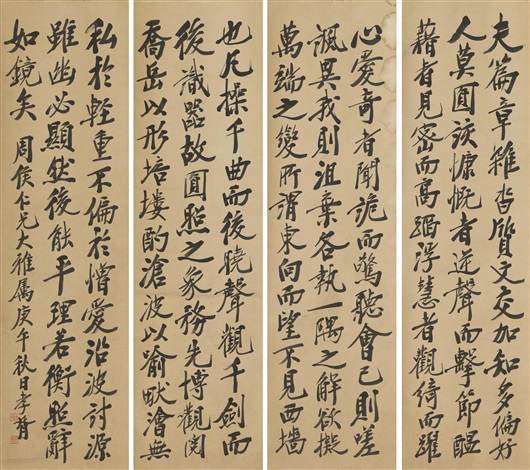 夫篇章雜沓質文交加知多偏好
人莫圓該慷慨者逆聲而擊節醞
藉者見密而高蹈浮慧者觀綺而躍
心愛奇者聞詭而驚聽會己則嗟
諷異我則沮棄各執一隅之解欲擬
萬端之變所謂東向而望不見西墻
也凡操千曲而後曉聲觀千劍而
後識器故圓照之象務先博觀閱
喬岳以形培塿酌滄波以喻畎澮無
私於輕重不偏於憎愛沿波討源
雖幽必顯然後能平理若衡照辭
如鏡矣 周侯仁兄大雅属 庚午秋日孝胥